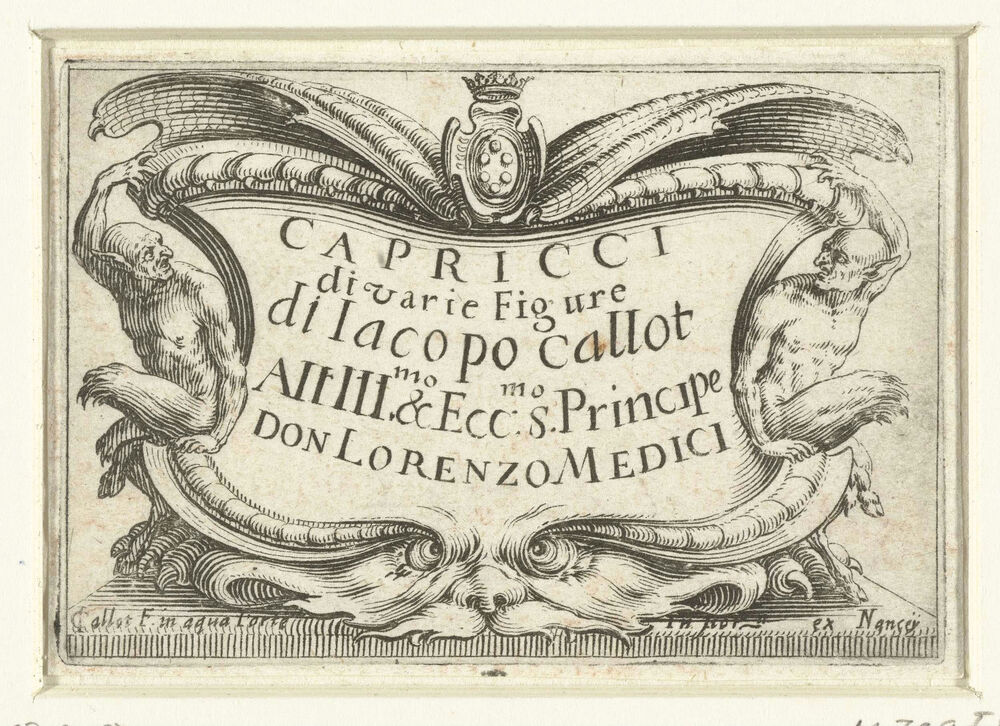 CAPRICCI
di varie Figure
di Iacopo Callot
All Ill.mo & Ecc.mo s. Principe
DON LORENZO MEDICI
Callot F. in aqua forte
ex Nanceÿ